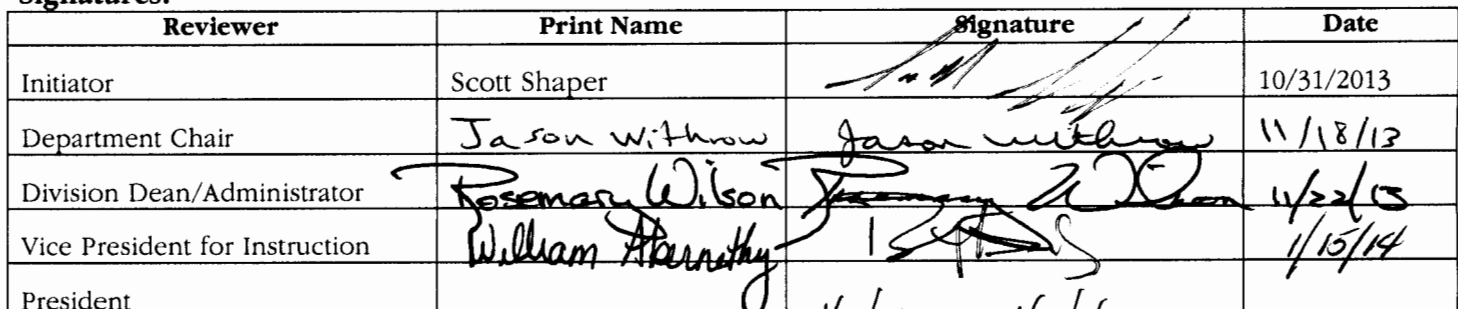 Signatures:
Reviewer Print Name Signature Date
Initiator Scott Shaper 10/31/2013
Department Chair Jason Withrow Jason Withrow 11/18/13
Division Dean/Administrator Rosemary Wilson Rosemary Wilson 11/22/13
Vice President for Instruction William Abernethy 1/15/14
President